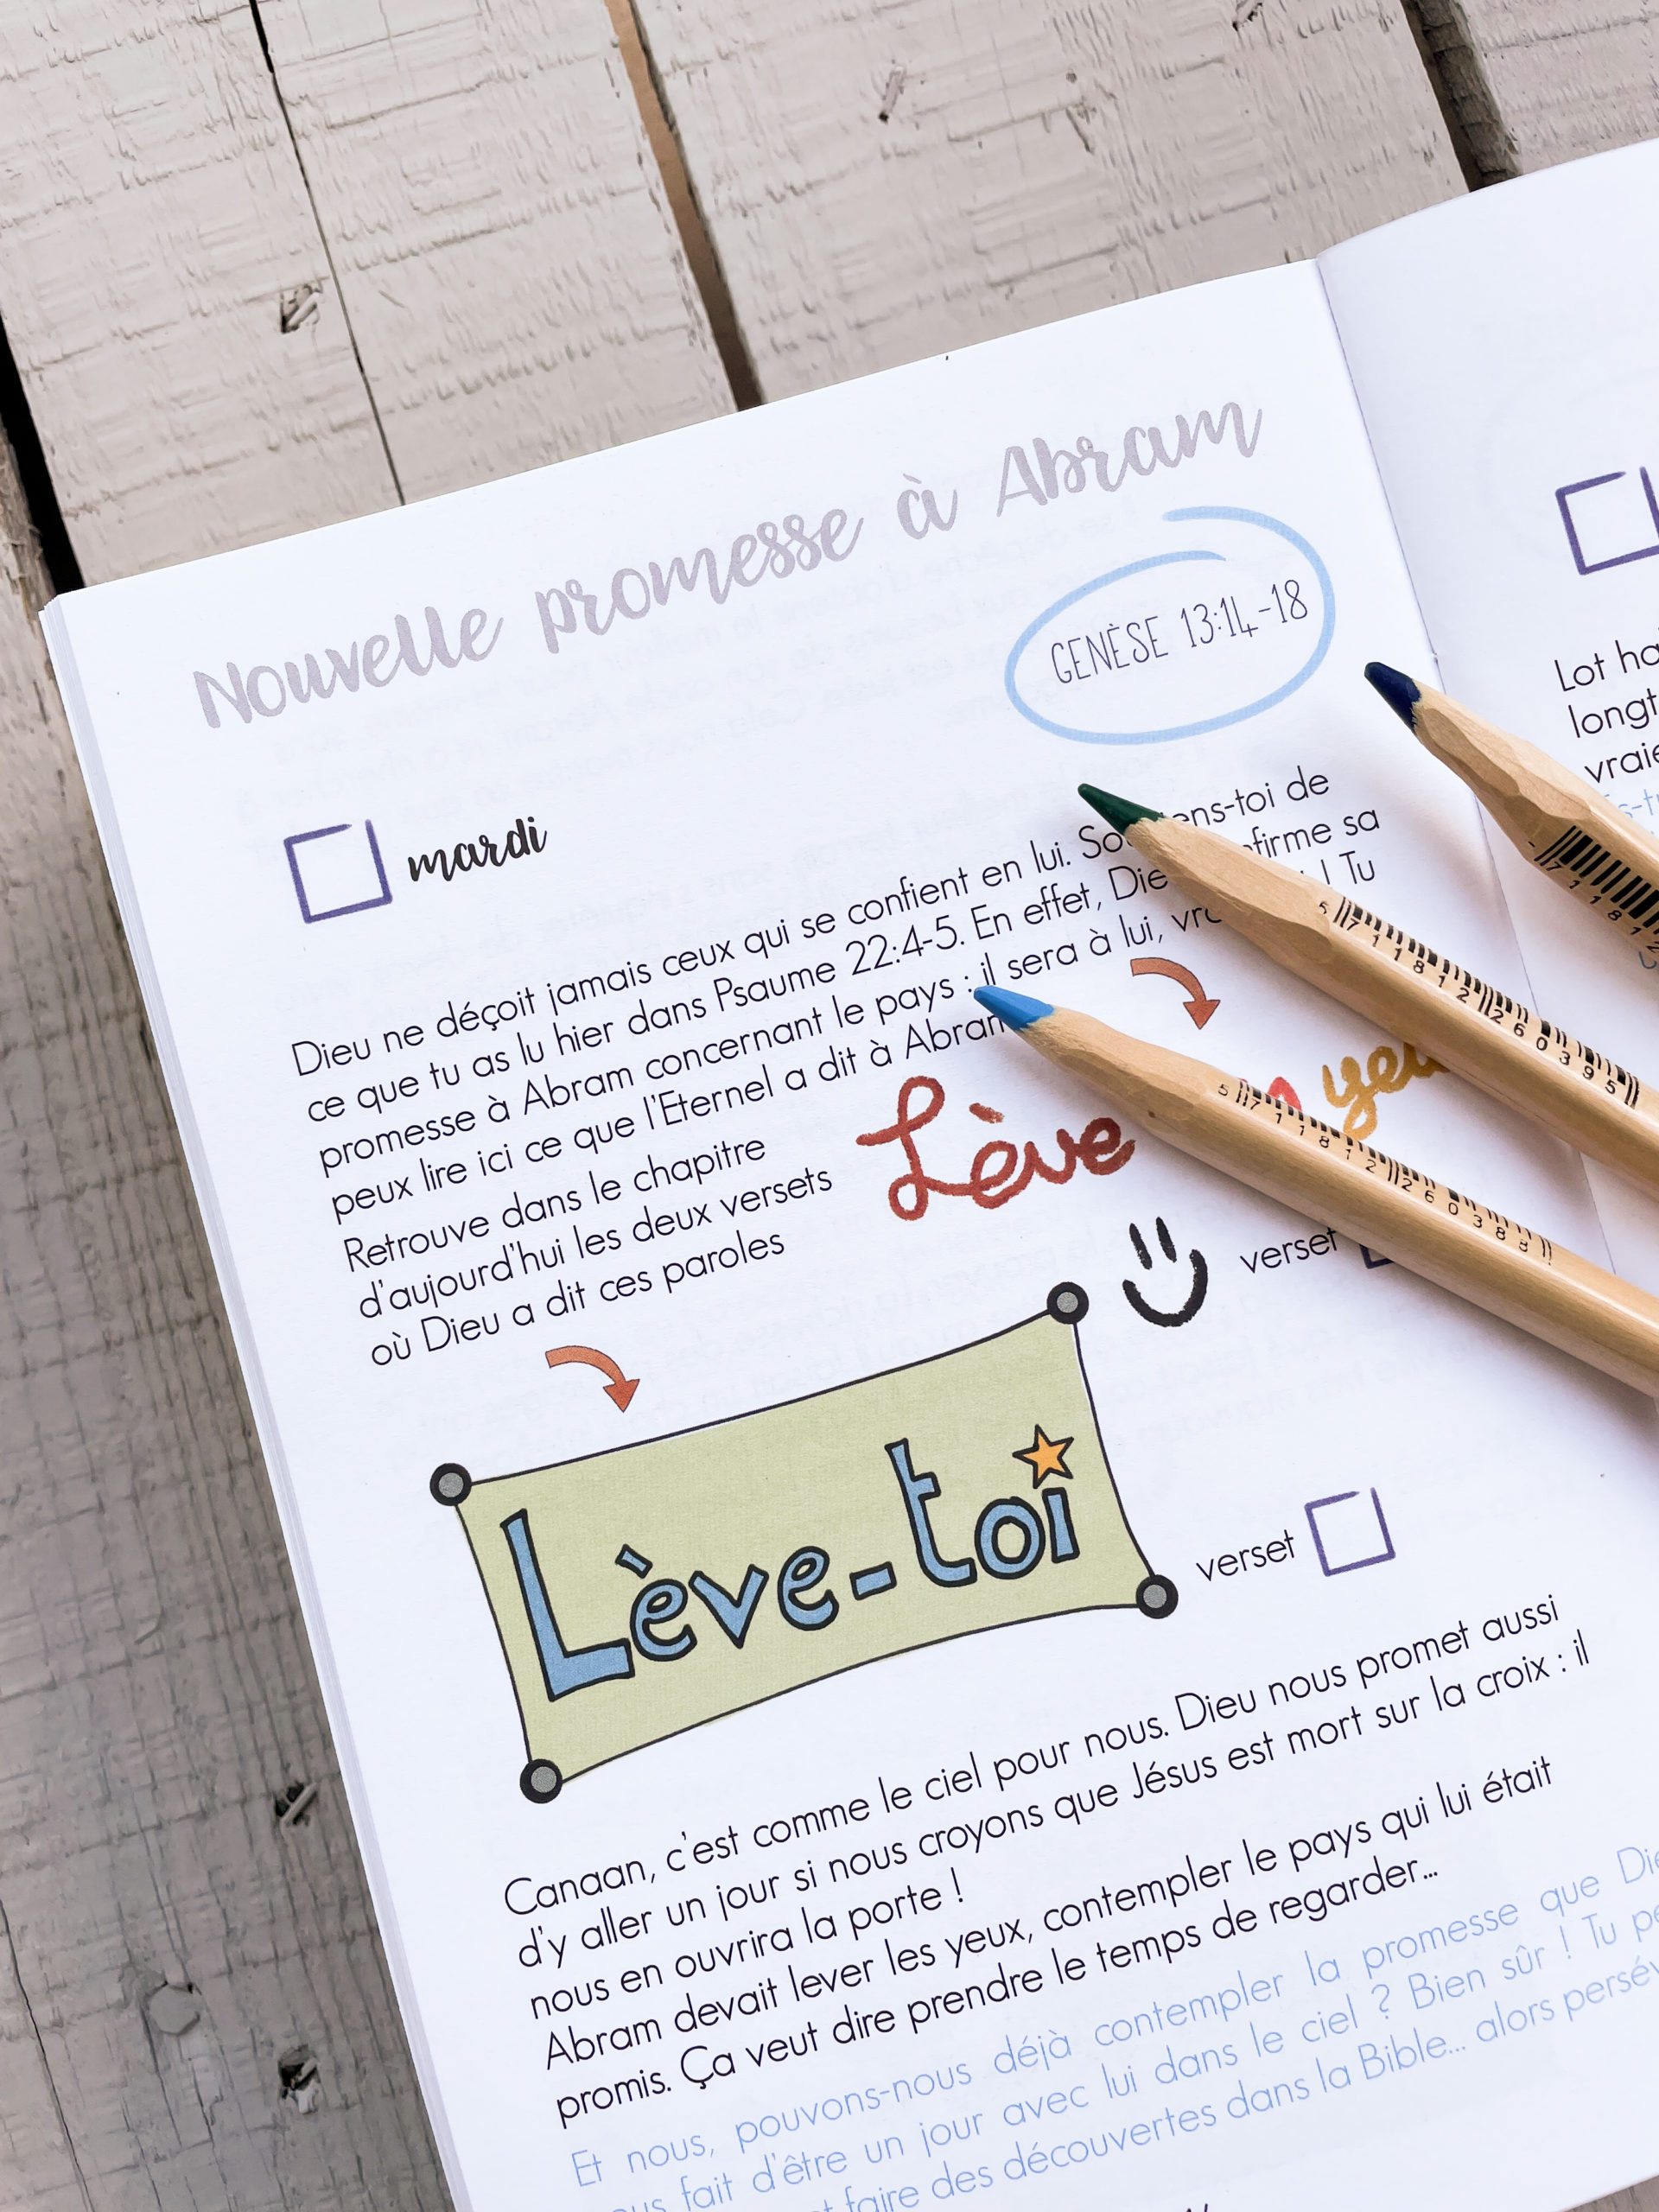 Nouvelle promesse à Abram
GENÈSE 13:14-18
mardi
Dieu ne déçoit jamais ceux qui se confient en lui. de
ce que tu as lu hier dans Psaume 22:4-5. En effet, sa
promesse à Abram concernant le pays : il sera à lui, ! Tu
peux lire ici ce que l'Eternel a dit à
Retrouve dans le chapitre
d'aujourd'hui les deux versets
où Dieu a dit ces paroles
Lève
verset
Lève-toi
verset
Canaan, c'est comme le ciel pour nous. Dieu nous promet aussi
d'y aller un jour si nous croyons que Jésus est mort sur la croix : il
nous en ouvrira la porte !
Abram devait lever les yeux, contempler le pays qui lui était
promis. Ça veut dire prendre le temps de regarder...
Et nous, pouvons-nous déjà contempler la promesse que
fait d'être un jour avec lui dans le ciel ? Bien sûr ! Tu
faire des découvertes dans la Bible... alors
Lot
5 711812 260395
5 711812 260388